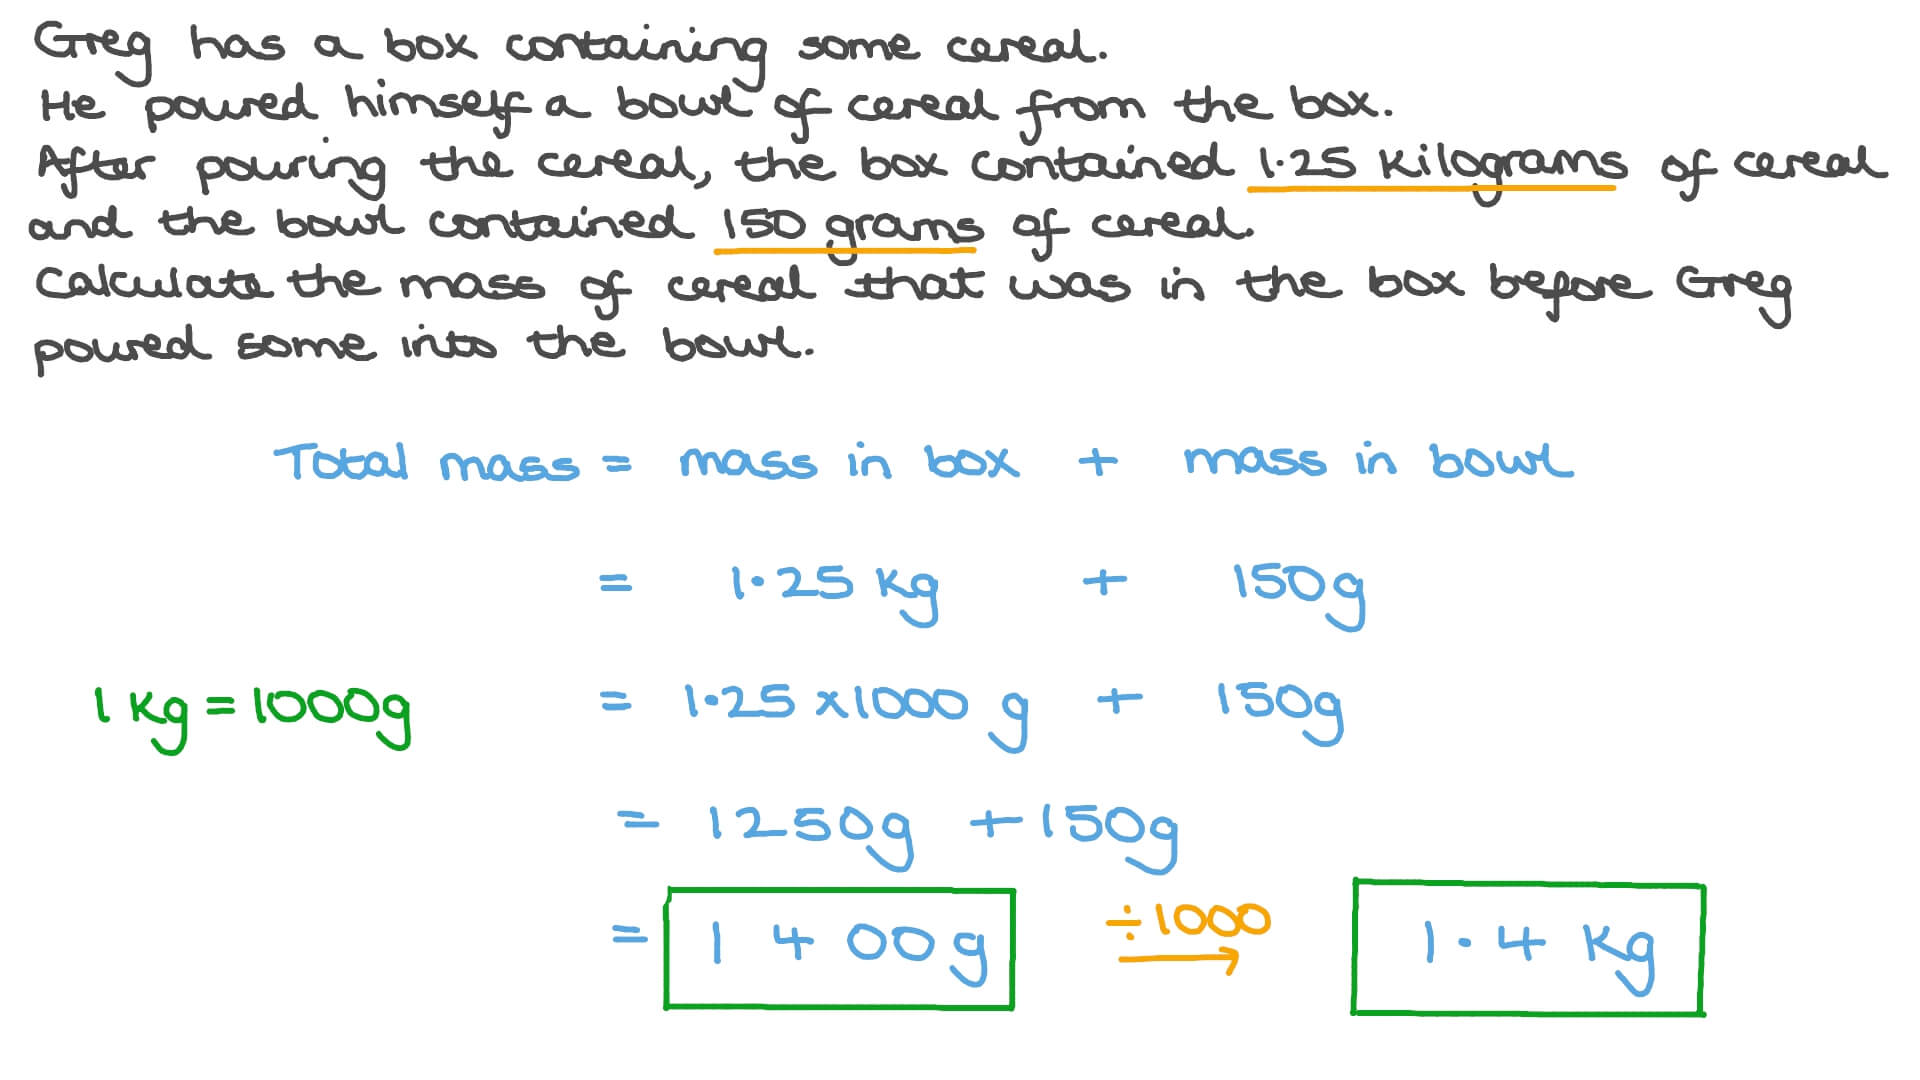 Greg has a box containing some cereal.
He poured himself a bowl of cereal from the box.
After pouring the cereal, the box contained 1.25 kilograms of cereal
and the bowl contained 150 grams of cereal.
Calculate the mass of cereal that was in the box before Greg
poured some into the bowl.
Total mass = mass in box + mass in bowl
= 1.25 kg + 150g
1 kg = 1000g = 1.25 × 1000 g + 150g
= 1250g + 150g
= 1400g ÷1000 1.4 kg